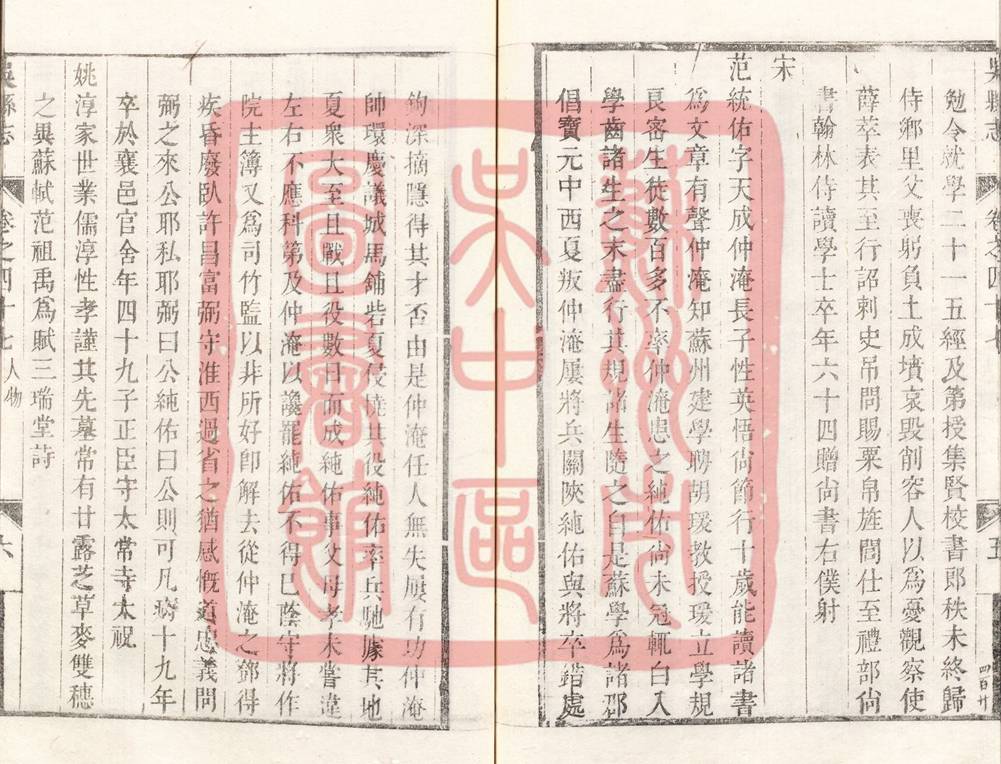 吳縣志 卷之四十七 五
勉令就學二十一五經及第授集賢校書郎秩未終歸
侍鄉里父喪躬負土成墳哀毀削容人以爲憂觀察使
薛苹表其至行詔刺史吊問賜粟帛旌閭仕至禮部尙
書翰林侍讀學士卒年六十四贈尙書右僕射
宋
范統佑字天成仲淹長子性英悟尙節行十歲能讀諸書
爲文章有聲仲淹知蘇州建學聘胡瑗教授瑗立學規
良密生徒數百多不率仲淹患之純佑尙未冠輒白入
學齒諸生之末盡行其規諸生隨之自是蘇學爲諸郡
倡寶元中西夏叛仲淹屢將兵關陝純佑與將卒錯處
鉤深摘隱得其才否由是仲淹任人無失屢有功仲淹
帥環慶議城馬鋪砦夏侵撓其役純佑率兵馳據其地
夏衆大至且戰且役數日而成純佑事父母孝未嘗違
左右不應科第及仲淹以讒罷純佑不得已蔭守將作
院主簿又爲司竹監以非所好卽解去從仲淹之鄧得
疾昏廢臥許昌富弼守淮西過省之猶感慨道忠義問
弼之來公耶私耶弼曰公純佑曰公則可凡病十九年
卒於襄邑官舍年四十九子正臣守太常寺太祝
姚淳家世業儒淳性孝謹其先墓常有甘露芝草麥雙穗
之異蘇軾范祖禹爲賦三瑞堂詩
吳縣志 卷之四十七 人物 六
四百廿
蘇州市
吳中區
圖書館